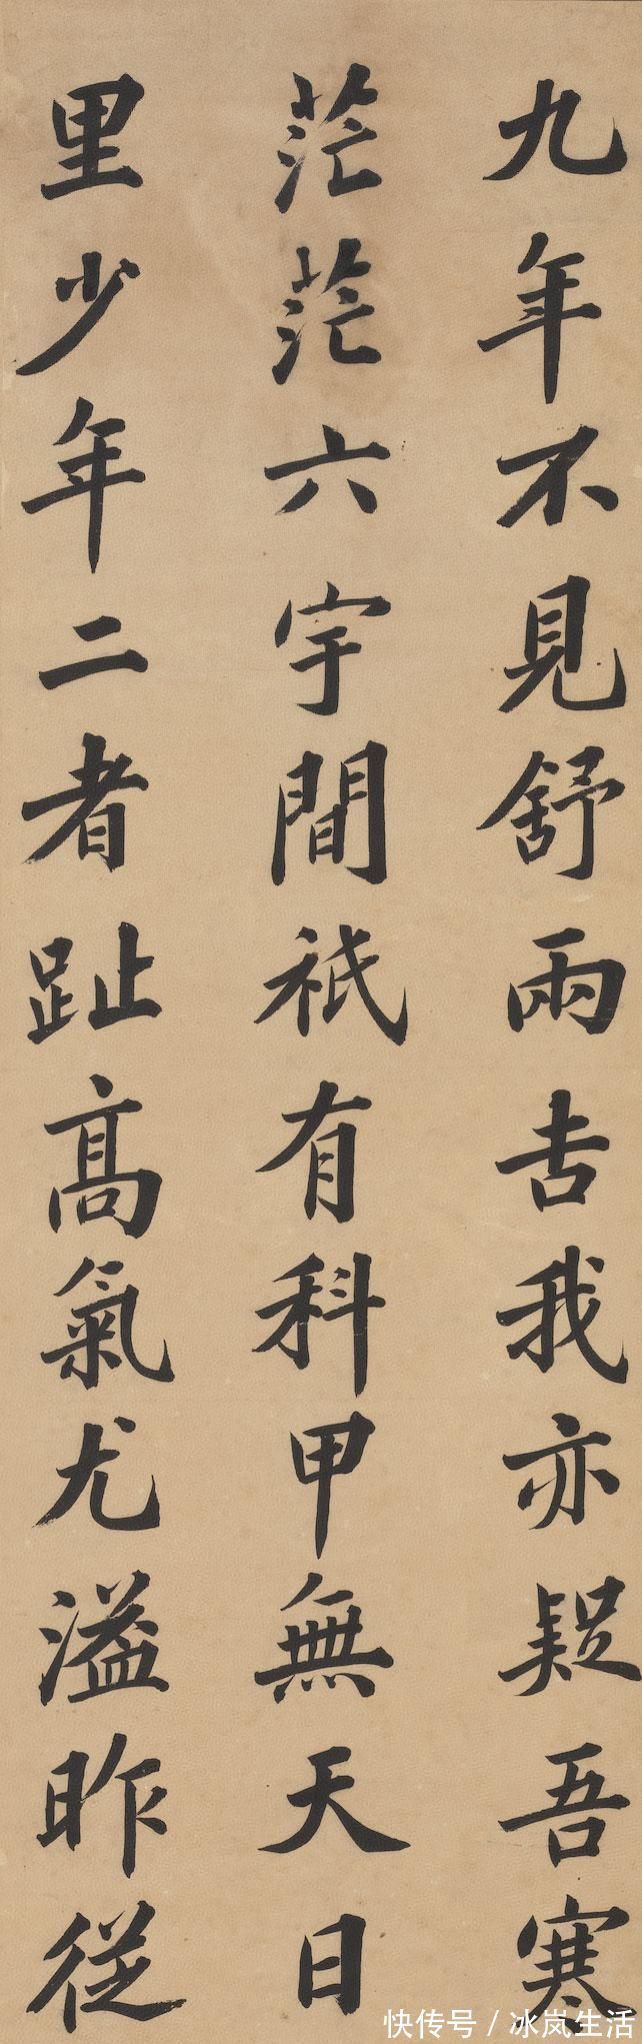 九年不見舒兩吉我亦疑吾寒
茫茫六宇間祇有科甲無天日
里少年二者趾髙氣尤溢昨從
快传号 / 冰岚生活